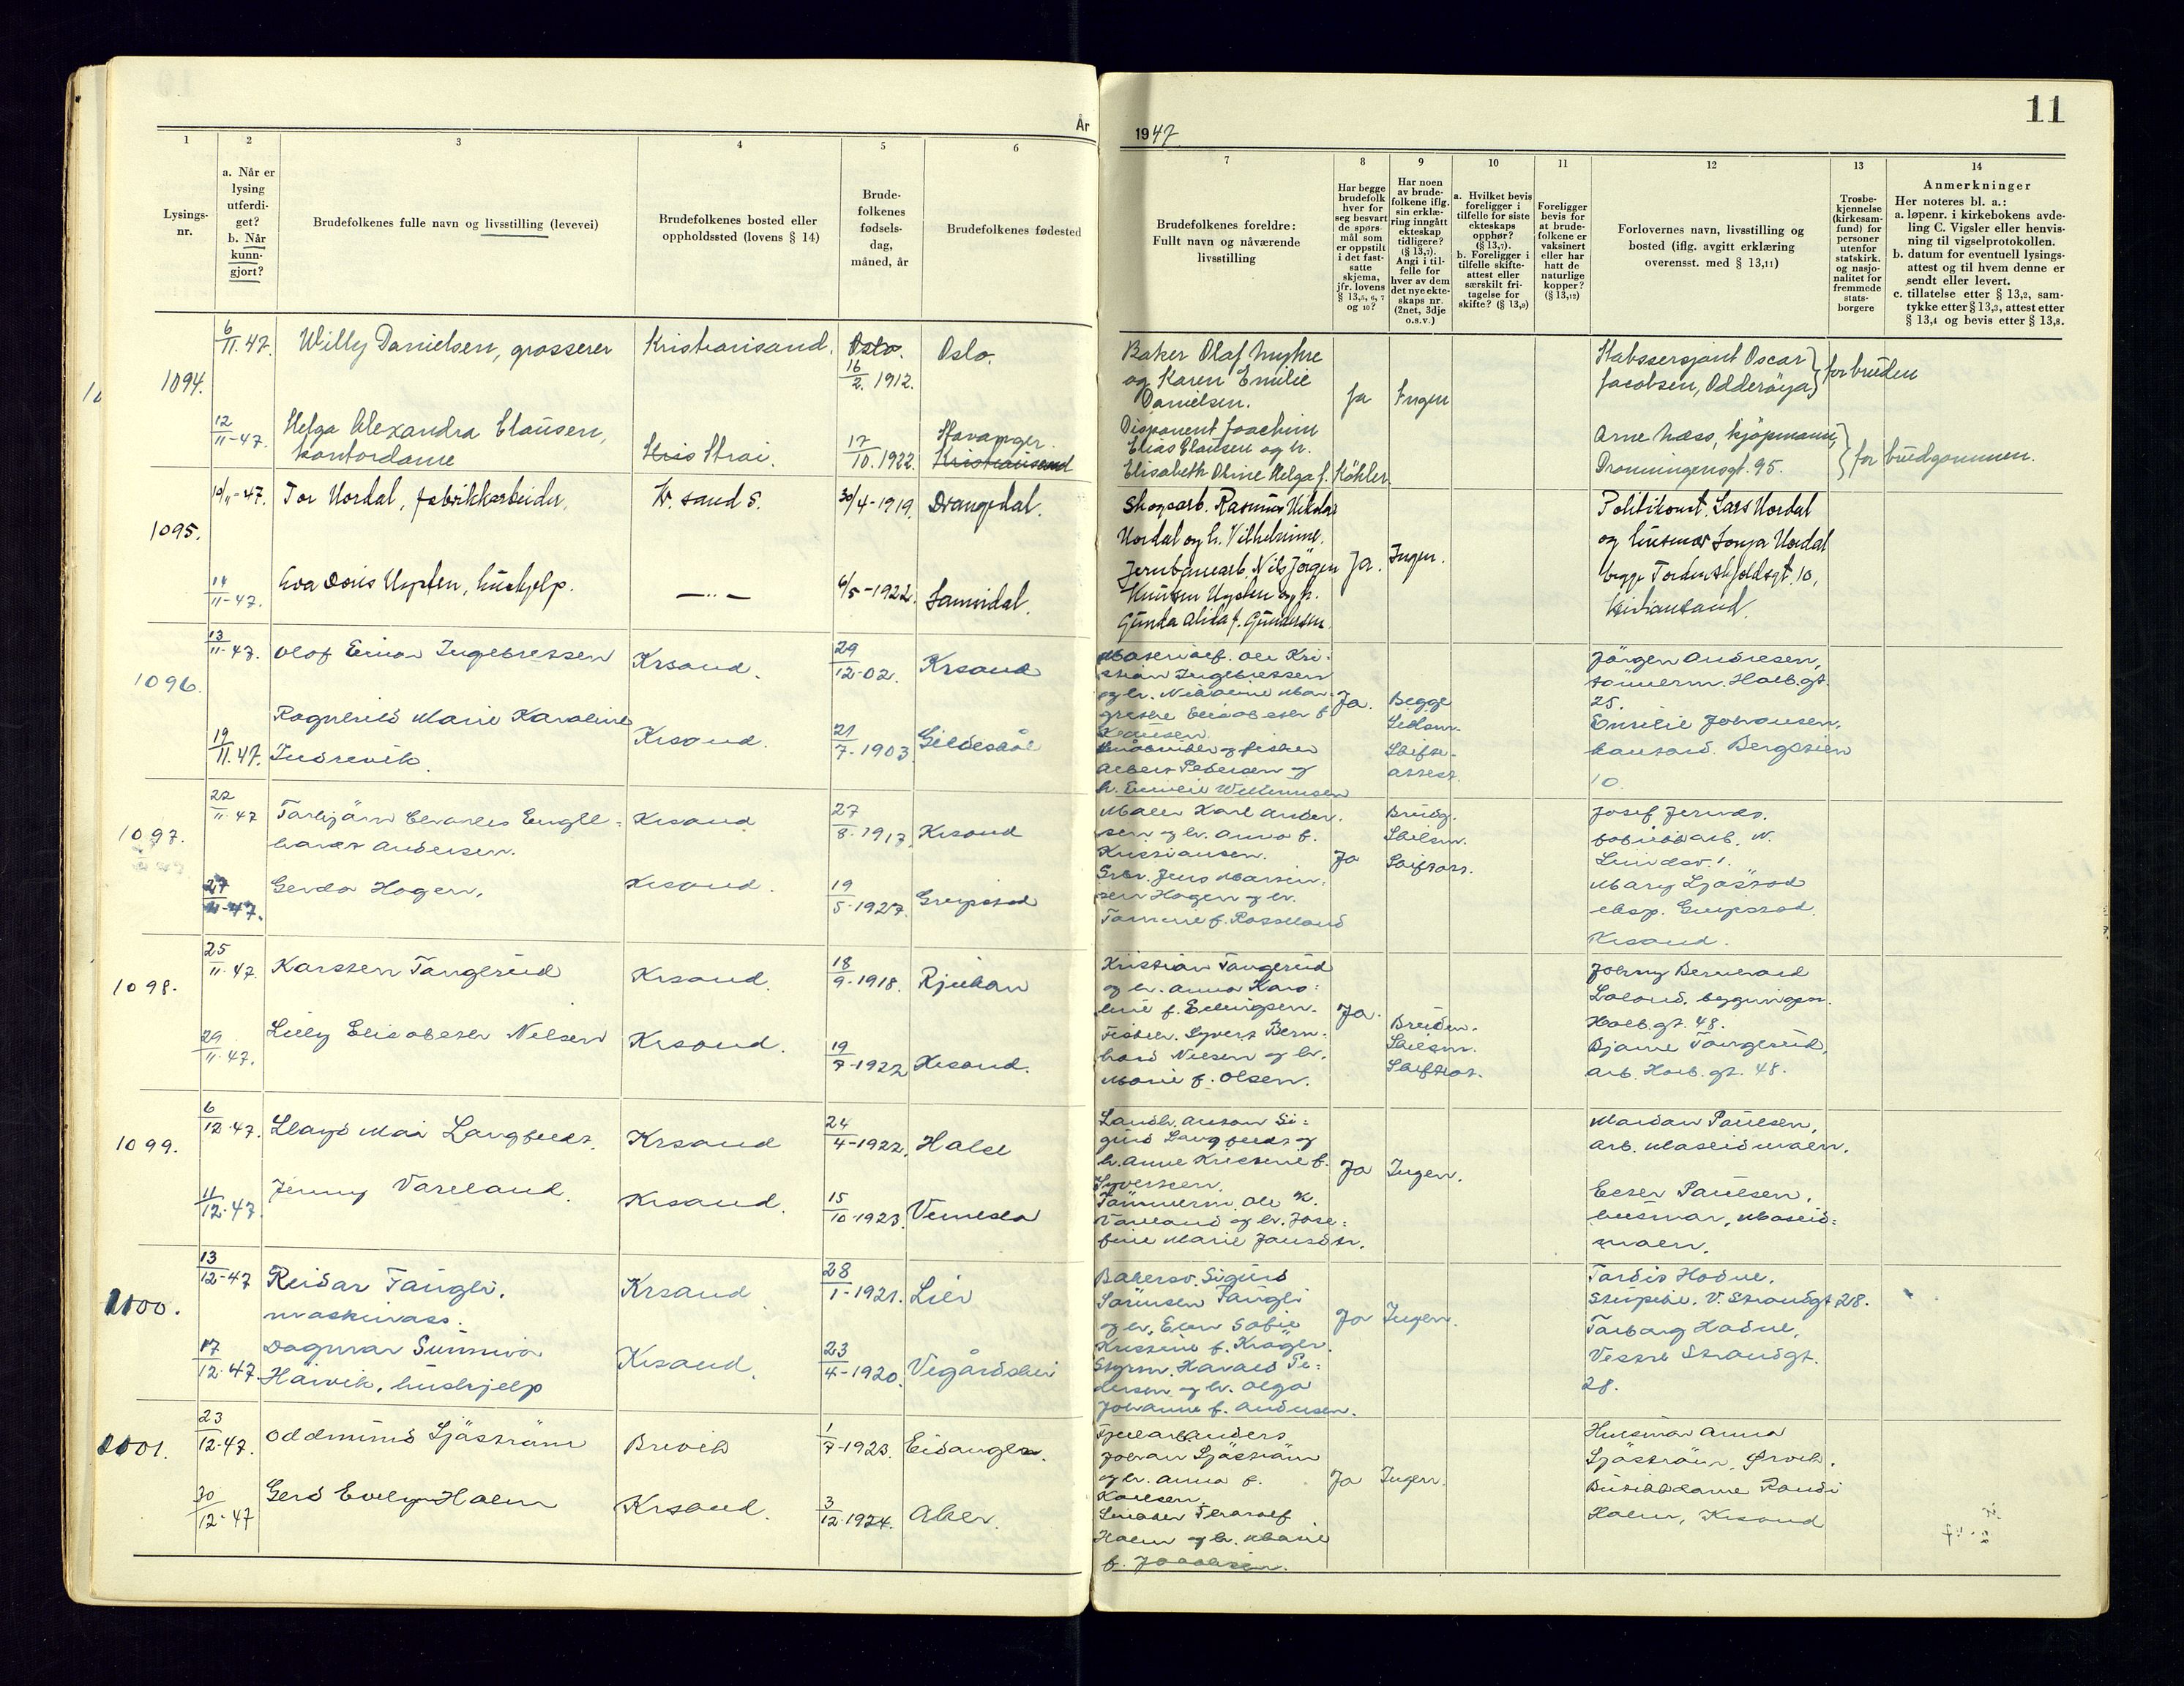 11
År
1947
1
2
3
4
5
6
7
8
9
10
11
12
13
14
Lysings-
nr.
a. Når er
lysing
utferdi-
get?
b. Når
kunn-
gjort?
Brudefolkenes fulle navn og livsstilling (levevei)
Brudefolkenes bosted eller
oppholdssted (lovens § 14)
Brude-
folkenes
fødsels-
dag,
måned, år
Brudefolkenes fødested
Brudefolkenes foreldre:
Fullt navn og nåværende
livsstilling
Har begge
brudefolk
hver for
seg besvart
de spørs-
mål som
er oppstilt
i det fast-
satte
skjema,
jfr. lovens
§ 13,5, 6, 7
og 10?
Har noen
av brude-
folkene iflg.
sin erklæ-
ring inngått
ekteskap
tidligere?
(§ 13,7).
Angi i til-
felle for
hver av dem
det nye ekte-
skaps nr.
(2net, 3dje
o.s.v.)
a. Hvilket bevis
foreligger i
tilfelle for siste
ekteskaps
opphør?
(§ 13,7).
b. Foreligger i
tilfelle skifte-
attest eller
særskilt fri-
tagelse for
skifte? (§ 13,9)
Foreligger
bevis for
at brude-
folkene er
vaksinert
eller har
hatt de
naturlige
kopper?
(§ 13,12)
Forlovernes navn, livsstilling og
bosted (iflg. avgitt erklæring
overensst. med § 13,11)
Trosbe-
kjennelse
(kirkesam-
fund) for
personer
utenfor
statskirk.
og nasjo-
nalitet for
fremmede
stats-
borgere
Anmerkninger
Her noteres bl. a.:
a. løpenr. i kirkebokens avde-
ling C. Vigsler eller henvis-
ning til vigselprotokollen.
b. datum for eventuell lysings-
attest og til hvem denne er
sendt eller levert.
c. tillatelse etter § 13,2, sam-
tykke etter § 13,3, attest etter
§ 13,4 og bevis etter § 13,8.
1094.
6/11.47.
Willy Danielsen, grosserer
Kristiansand.
Oslo.
16/2.1912.
Oslo.
Baker Olaf Myhre
og Karen Emilie
Danielsen.
Ja
Ingen
Stabssersjant Oscar
Jacobsen, Odderøya
for bruden
12/11-47.
Helga Alexandra Clausen,
kontordame
Kris Strai.
17/10.1922.
Stavanger.
Kristiansand
Disponent Joachim
Elias Clausen og h.
Elisabeth Oline Helga f. Köhler
Arne Næss, kjøpmann,
Dronningensgt. 95.
for brudgommen.
1095.
10/11-47.
Tor Nordal, fabrikkarbeider,
Kr. sand S.
30/4-1919.
Drangedal.
Skogsarb. Rasmus
Nordal og h. Vilhelmine.
Politikonst. Lars Nordal
og husmor Sonja Nordal
begge Tordenskjoldsgt. 10,
Kristiansand.
14/11-47.
Eva Doris Uglen, hushjelp.
— ·· —
6/5-1922.
Sannidal.
Jernbanearb. Nils Jörgen
Knutsen Uglen og h.
Gunda Alida f. Gundersen.
Ja.
Ingen.
1096.
13/11-47.
Olof Einar Ingebretsen
Krsand.
29/12-02.
Krsand
Ole Kri-
stian Ingebretsen
Ja.
Begge
Skilsm.
Skifte-
attest.
Jörgen Andresen,
tömmerm. Holb.gt.
25.
Emilie Johansen,
Bergstien
10.
19/11.47.
Ragnhild Marie Karoline
Indrevik.
Krsand.
21/7-1903
Gildeskål
Albert Pedersen og
1097.
22/11-47
Torbjörn Charles Engel-
hardt Andersen.
Krsand
27/8-1917.
Krsand
Maler Karl Ander-
sen og h. Anna f.
Kristiansen.
Ja
Brudg.
Skilsm.
Skifteatt.
Josef Jernæs,
fabrikkarb. N.
Lundsv. 1.
27/11-47.
Gerda Hagen,
Krsand.
19/5-1927.
Greipstad
Jens Martin-
sen Hagen og h.
Tomine f. Rosseland
Mary Ljosstad
eksp. Greipstad.
Krsand.
1098.
25/11-47.
Karsten Tangerud
Krsand.
18/9-1918.
Rjukan
Kristian Tangerud
og h. Anna Karo-
line f. Ellingsen.
Ja.
Bruden.
Skilsm.
Skifteat.
Johnny Bernhard
Laland, bygningsn.
Holb.gt. 48.
Bjarne Tangerud,
arb. Holb.gt. 48.
29/11-47.
Lilly Elisabeth Nilsen
Krsand.
19/7-1922
Krsand.
Fiskeh. Syvert Bern-
hard Nilsen og h.
Marie f. Olsen.
1099.
6/12-47.
Lloyd Mai Langfeldt.
Krsand
24/4-1922.
Halse
Landh. Anton Si-
gurd Langfeldt og
h. Anne Kristine f.
Syvertsen.
Ja
Ingen.
Mardon Paulsen,
arb. Moseidmoen.
11/12-47.
Jenny Vareland.
Krsand.
15/10-1923.
Vennesla
Tömmerm. Ole K.
Vareland og h. Jose-
fine Marie Jansdtr.
Ester Paulsen,
husmor, Moseid-
moen.
1100.
13/12-47
Reidar Tangli,
maskinass.
Krsand.
28/1-1921.
Lier
Bakersv. Sigurd
Sörensen Tangli
og h. Ellen Sofie
Kristine f. Kroger.
Ja
Ingen.
Tordis Hodne,
V. Strandgt 28.
Torborg Hodne,
Vestre Strandgt.
28.
17/12-47
Dagmar Sunniva
Håvik, hushjelp
Krsand.
23/4-1920.
Vegårdshei
Styrm. Harald Pe-
dersen og h. Olga
Johanne f. Andersen.
1101.
23/12-47.
Oddmund Sjöström
Brevik
1/7-1923.
Eidanger.
Anders
Johan Sjöström
og h. Anna f.
Karlsen.
Ja
Ingen.
Husmor Anna
Sjöström, Brevik.
Butikkdame Randi
Holm, Krsand
30/12-47
Gerd Evelyn Holm
Krsand.
3/12-1924.
Aker.
Snekker Thoralf
Holm og h. Marie
f. Jacobsen.